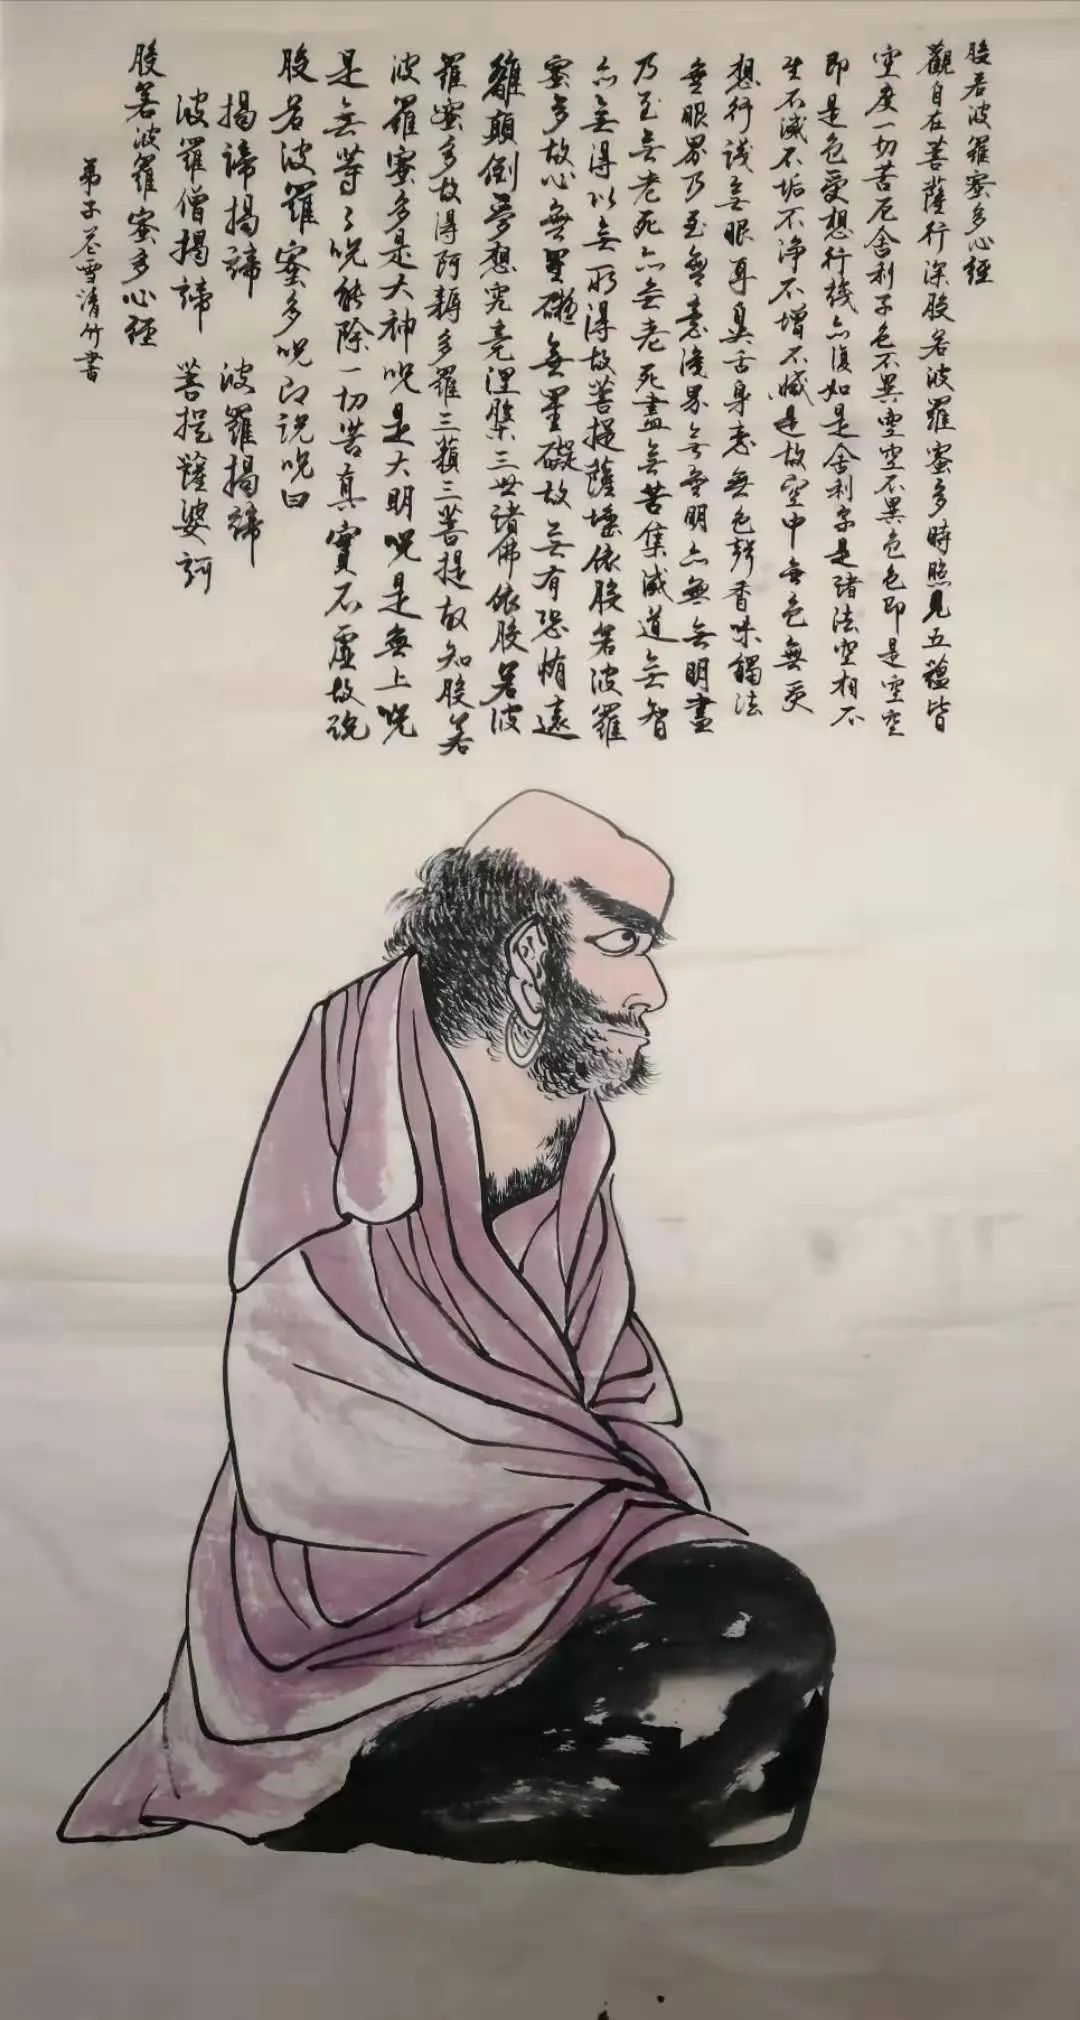 般若波羅蜜多心經
觀自在菩薩行深般若波羅蜜多時照見五蘊皆
空度一切苦厄舍利子色不異空空不異色色即是空空
即是色受想行識亦復如是舍利子是諸法空相不
生不滅不垢不净不增不減是故空中無色無受
想行識無眼耳鼻舌身意無色聲香味觸法
無眼界乃至無意識界無無明亦無無明盡
乃至無老死亦無老死盡無苦集滅道無智
亦無得以無所得故菩提薩埵依般若波羅
蜜多故心無罣礙無罣礙故無有恐怖遠
離顛倒夢想究竟涅槃三世諸佛依般若波
羅蜜多故得阿耨多羅三藐三菩提故知般若
波羅蜜多是大神呪是大明呪是無上呪
是無等々呪能除一切苦真實不虛故說
般若波羅蜜多呪即說呪曰
揭諦揭諦 波羅揭諦
波羅僧揭諦 菩提薩婆訶
般若波羅蜜多心經
弟子雪清竹書